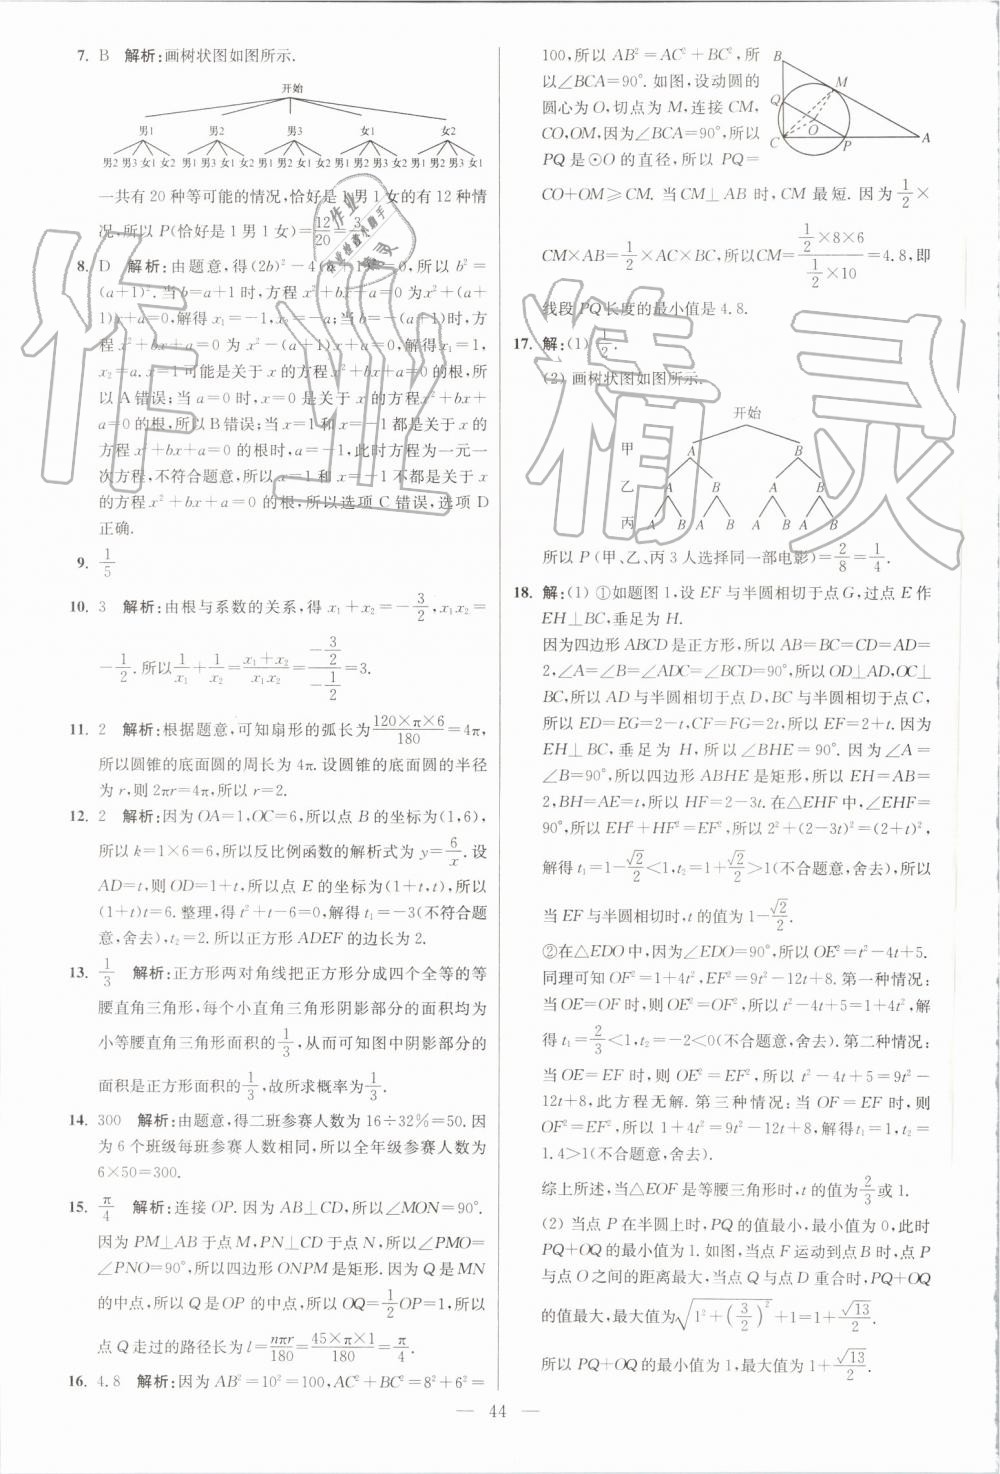 7. B 解析:画树状图如图所示.
开始
男1 男2 男3 女1 女2
男2 男3 女1 女2 男1 男3 女1 女2 男1 男2 女1 女2 男1 男2 男3 女2 男1 男2 男3 女1
一共有 20 种等可能的情况,恰好是 1 男 1 女的有 12 种情
况,所以 P(恰好是 1 男 1 女)=12/20=3/5.
8. D 解析:由题意,得(2b)²-4(a+1)²=0,所以 b²=
(a+1)².当 b=a+1 时,方程 x²+bx+a=0 为x²+(a+
1)x+a=0,解得 x₁=-1,x₂=-a;当 b=-(a+1)时,方
程 x²+bx+a=0 为 x²-(a+1)x+a=0,解得x₁=1,
x₂=a.x=1可能是关于 x 的方程 x²+bx+a=0 的根,所
以 A 错误;当 a=0 时,x=0 是关于 x 的方程x²+bx+
a=0的根,所以B错误;当x=1 和 x=-1都是关于 x 的
方程 x²+bx+a=0 的根时,a=-1,此时方程为一元一
次方程,不符合题意,所以 x=1 和 x=-1不都是关于 x
的方程 x²+bx+a=0 的根,所以选项 C 错误,选项 D
正确.
9. 1/5
10. 3 解析:由根与系数的关系,得 x₁+x₂=-3/2,x₁x₂=
-1/2.所以1/x₁+1/x₂=(x₁+x₂)/(x₁x₂)=(-3/2)/(-1/2)=3.
11. 2 解析:根据题意,可知扇形的弧长为(120×π×6)/180=4π,
所以圆锥的底面圆的周长为 4π.设圆锥的底面圆的半径
为 r,则 2πr=4π,所以 r=2.
12. 2 解析:因为 OA=1,OC=6,所以点 B 的坐标为(1,6),
所以 k=1×6=6,所以反比例函数的解析式为 y=6/x.设
AD=t,则 OD=1+t,所以点 E 的坐标为(1+t,t),所以
(1+t)t=6.整理,得 t²+t-6=0,解得 t₁=-3(不符合题
意,舍去),t₂=2.所以正方形 ADEF 的边长为 2.
13. 1/3 解析:正方形两对角线把正方形分成四个全等的等
腰直角三角形,每个小直角三角形阴影部分的面积均为
小等腰直角三角形面积的1/3,从而可知图中阴影部分的
面积是正方形面积的1/3,故所求概率为1/3.
14. 300 解析:由题意,得二班参赛人数为 16÷32%=50.因
为 6 个班级每班参赛人数相同,所以全年级参赛人数为
6×50=300.
15. π/4 解析:连接 OP.因为 AB⊥CD,所以∠MON=90°.
因为 PM⊥AB 于点 M,PN⊥CD 于点 N,所以∠PMO=
∠PNO=90°,所以四边形 ONPM 是矩形.因为 Q 是 MN
的中点,所以 Q 是 OP 的中点,所以 OQ=1/2OP=1,所以
点 Q 走过的路径长为 l=nπr/180=(45×π×1)/180=π/4.
16. 4.8 解析:因为 AB²=10²=100,AC²+BC²=8²+6²=
100,所以 AB²=AC²+BC²,所
以∠BCA=90°.如图,设动圆的
圆心为 O,切点为 M,连接 CM,
CO,OM,因为∠BCA=90°,所以
PQ 是⊙O 的直径,所以 PQ=
B M Q O C P A
CO+OM≥CM.当 CM⊥AB 时,CM 最短.因为1/2×
CM×AB=1/2×AC×BC,所以CM=(1/2×8×6)/(1/2×10)=4.8,即
线段 PQ 长度的最小值是 4.8.
17. 解:(1) 1/2.
(2) 画树状图如图所示.
开始
甲 A B
乙 A B A B
丙 A B A B A B A B
所以 P(甲、乙、丙 3 人选择同一部电影)=2/8=1/4.
18. 解:(1) ①如题图 1,设 EF 与半圆相切于点 G,过点 E 作
EH⊥BC,垂足为 H.
因为四边形 ABCD 是正方形,所以 AB=BC=CD=AD=
2,∠A=∠B=∠ADC=∠BCD=90°,所以OD⊥AD,OC⊥
BC,所以 AD 与半圆相切于点 D,BC 与半圆相切于点 C,
所以 ED=EG=2-t,CF=FG=2t,所以 EF=2+t.因为
EH⊥BC,垂足为 H,所以∠BHE=90°.因为∠A=
∠B=90°,所以四边形 ABHE 是矩形,所以 EH=AB=
2,BH=AE=t,所以 HF=2-3t.在△EHF 中,∠EHF=
90°,所以 EH²+HF²=EF²,所以 2²+(2-3t)²=(2+t)²,
解得 t₁=1-√2/2<1,t₂=1+√2/2>1(不合题意,舍去),所以
当 EF 与半圆相切时,t 的值为 1-√2/2.
②在△EDO 中,因为∠EDO=90°,所以 OE²=t²-4t+5.
同理可知 OF²=1+4t²,EF²=9t²-12t+8.第一种情况:
当 OE=OF 时,则 OE²=OF²,所以 t²-4t+5=1+4t²,解
得 t₁=2/3<1,t₂=-2<0(不合题意,舍去).第二种情况:
当 OE=EF 时,则 OE²=EF²,所以 t²-4t+5=9t²-
12t+8,此方程无解.第三种情况:当 OF=EF 时,则
OF²=EF²,所以 1+4t²=9t²-12t+8,解得t₁=1,t₂=
1.4>1(不合题意,舍去).
综上所述,当△EOF是等腰三角形时,t 的值为2/3或 1.
(2) 当点 P 在半圆上时,PQ 的值最小,最小值为 0,此时
PQ+OQ 的最小值为 1.如图,当点 F 运动到点 B 时,点 P
与点 O 之间的距离最大,当点 Q 与点 D 重合时,PQ+OQ
的值最大,最大值为√(1²+(3/2)²)+1=1+√13/2.
所以 PQ+OQ 的最小值为 1,最大值为 1+√13/2.
— 44 —
作业精灵